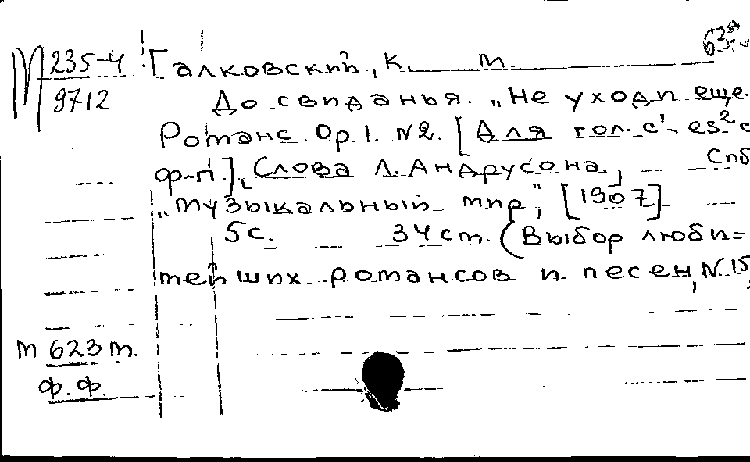 М 235-4 Галковский, К. т
9712 До свиданья. „Не уходи еще.
Романс. Op. 1. №2. [Для гол. с' - es²
ф-п.]. Слова Л. Андрусона, Спб
„Музыкальный мир", [1907]
5с. 34 ст. (Выбор люби=
мейших романсов и песен, N. 15,
м 623 т.
ф. ф.